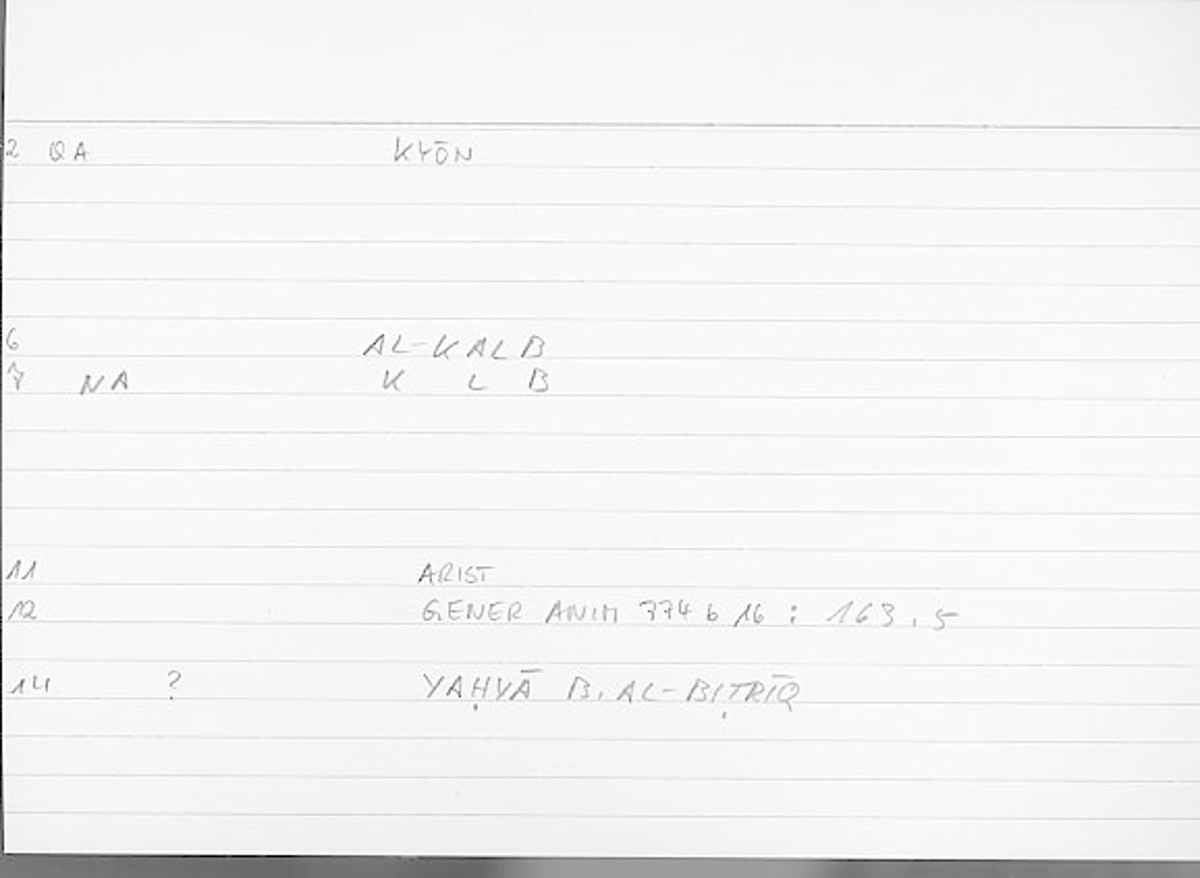 2 QA KYŌN
6 AL-KALB
7 NA K L B
11 ARIST
12 GENER ANIM 774 b 16 : 163.5
14 ? YAḤYĀ B. AL-BIṬRĪQ